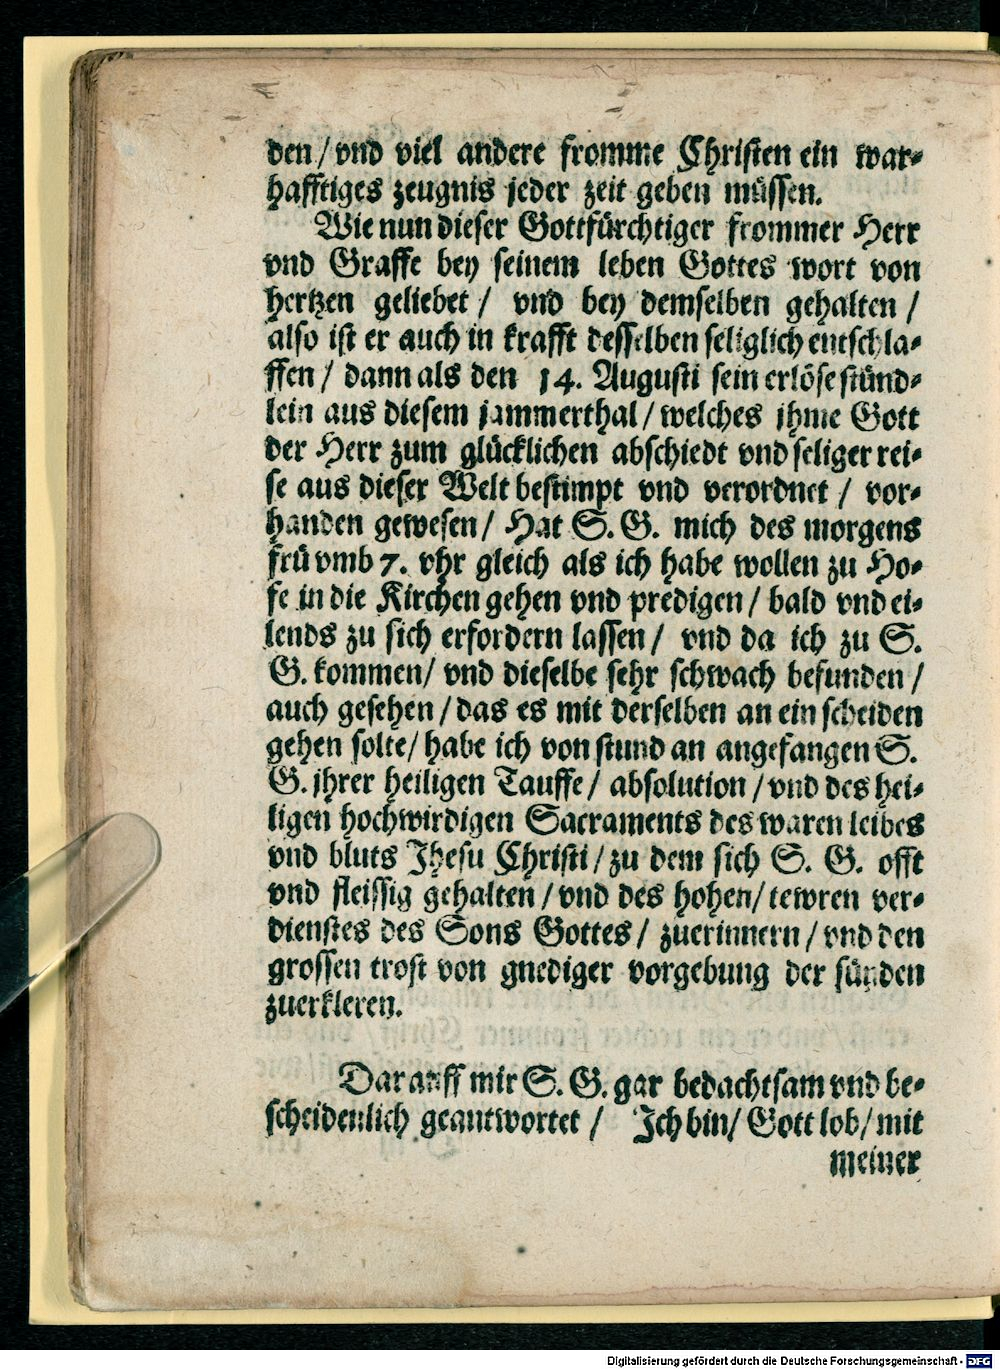 den / vnd viel andere fromme Christen ein war-
hafftiges zeugnis jeder zeit geben müssen.
Wie nun dieser Gottfürchtiger frommer Herr
vnd Graffe bey seinem leben Gottes wort von
hertzen geliebet / vnd bey demselben gehalten /
also ist er auch in krafft desselben seliglich entschla-
ffen / dann als den 14. Augusti sein erlöse stünd-
lein aus diesem jammerthal / welches jhme Gott
der Herr zum glücklichen abschiedt vnd seliger rei-
se aus dieser Welt bestimpt vnd verordnet / vor-
handen gewesen / Hat S. G. mich des morgens
frü vmb 7. vhr gleich als ich habe wollen zu Ho-
fe in die Kirchen gehen vnd predigen / bald vnd ei-
lends zu sich erfordern lassen / vnd da ich zu S.
G. kommen / vnd dieselbe sehr schwach befunden /
auch gesehen / das es mit derselben an ein scheiden
gehen solte / habe ich von stund an angefangen S.
G. jhrer heiligen Tauffe / absolution / vnd des hei-
ligen hochwirdigen Sacraments des waren leibes
vnd bluts Jhesu Christi / zu dem sich S. G. offt
vnd fleissig gehalten / vnd des hohen / tewren ver-
dienstes des Sons Gottes / zuerinnern / vnd den
grossen trost von gnediger vorgebung der sünden
zuerkleren.
Darauff mir S. G. gar bedachtsam vnd be-
scheidenlich geantwortet / Ich bin / Gott lob / mit
meiner
Digitalisierung gefördert durch die Deutsche Forschungsgemeinschaft - DFG